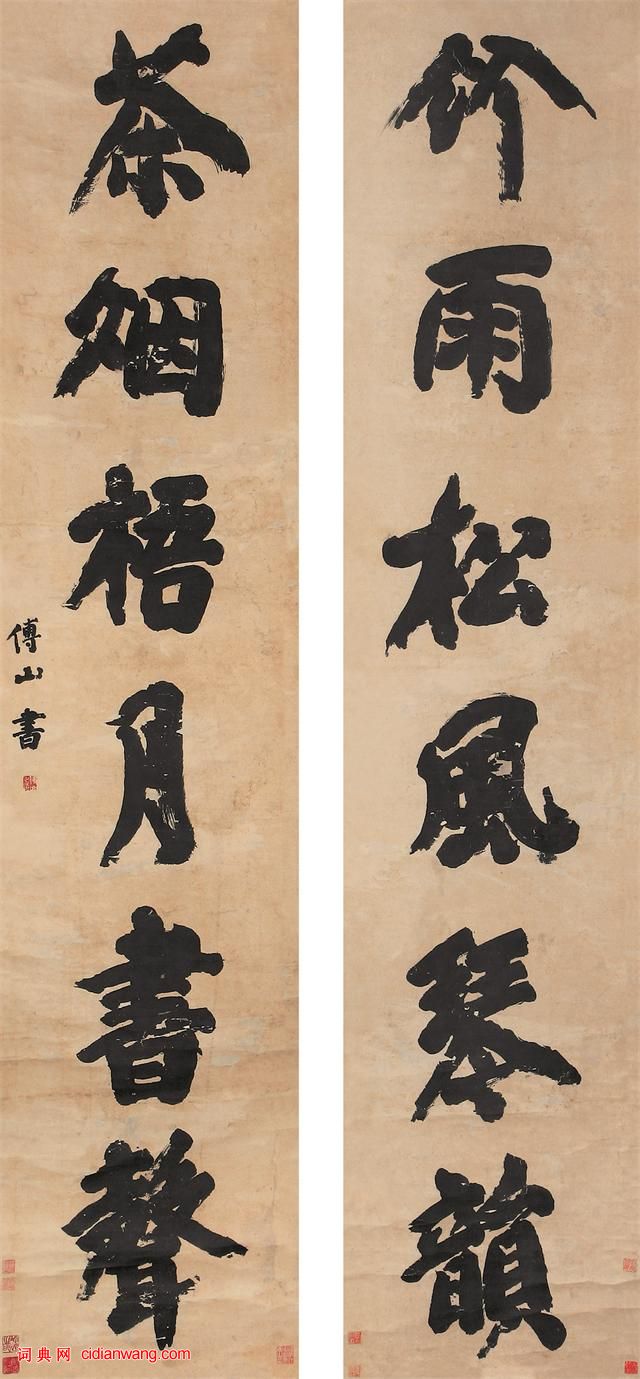 竹雨松風琴韻
茶烟梧月書聲
傅山書
词典网 cidianwang.com